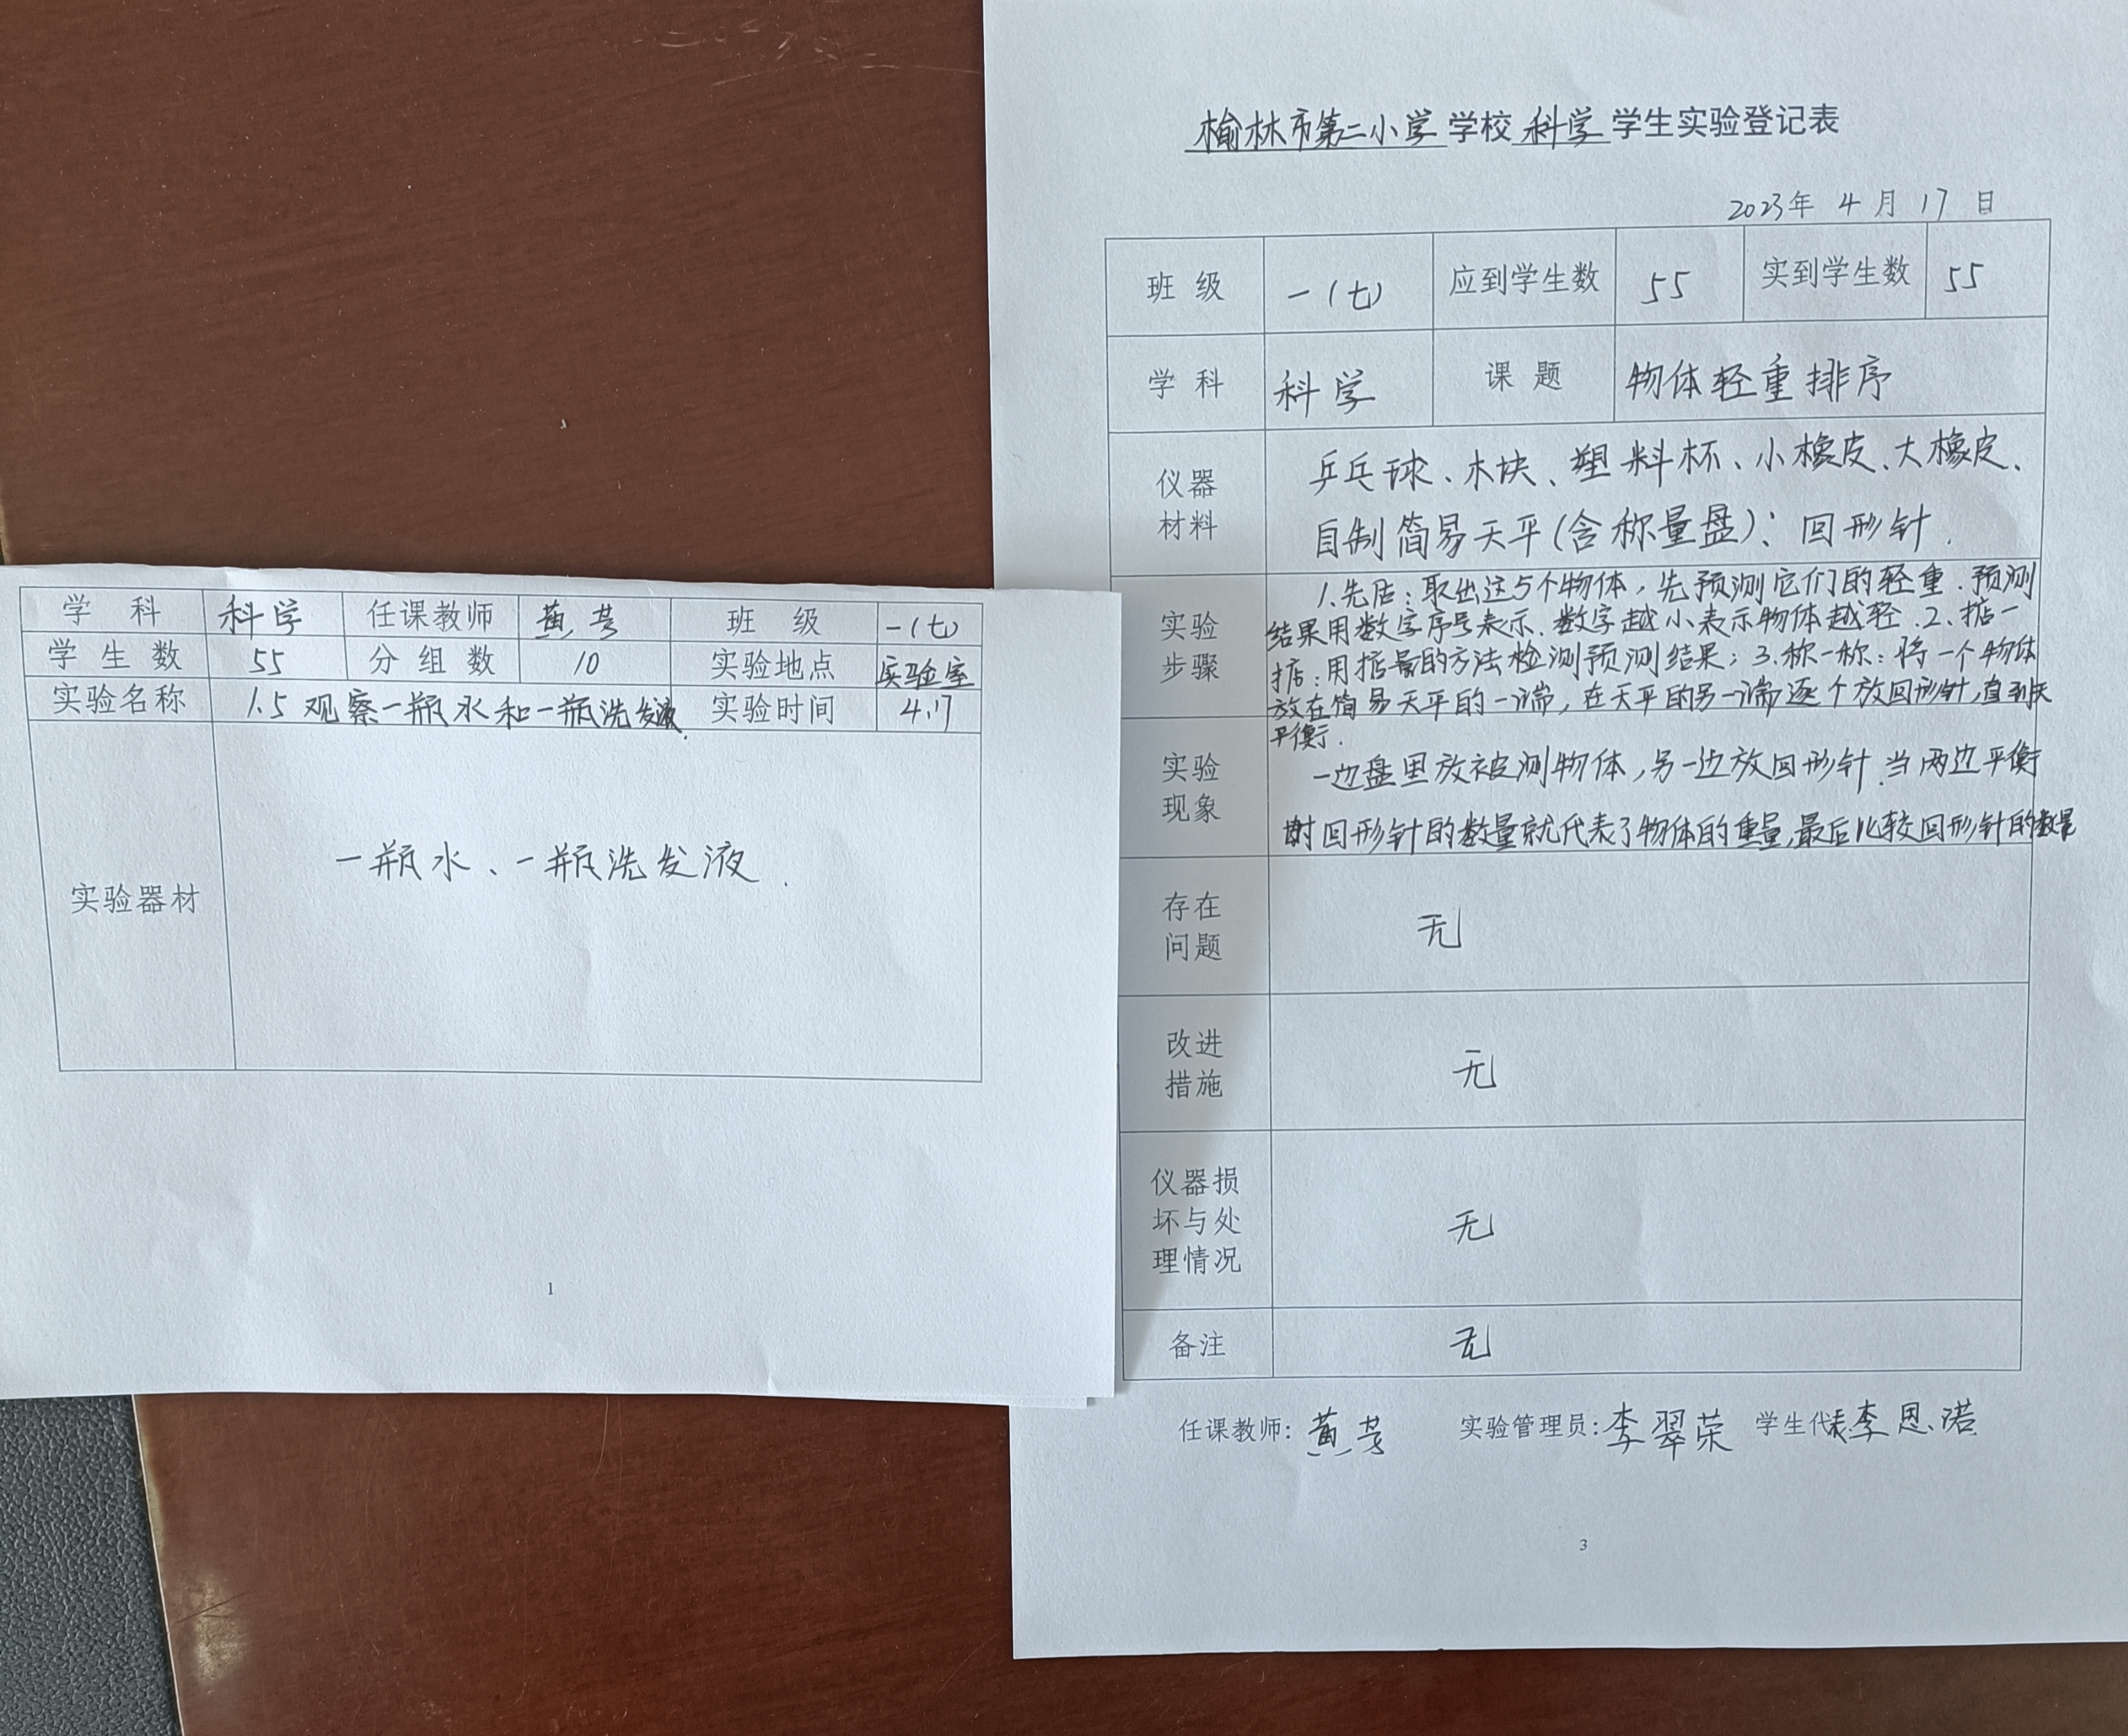 学 科 科学 任课教师 黄芳 班 级 一(七)
学 生 数 55 分 组 数 10 实验地点 实验室
实验名称 1.5 观察一瓶水和一瓶洗发液. 实验时间 4.17
实验器材 一瓶水、一瓶洗发液.
1
榆林市第二小学 学校 科学 学生实验登记表
2023年 4 月 17 日
班 级 一(七) 应到学生数 55 实到学生数 55
学 科 科学 课 题 物体轻重排序
仪器
材料
乒乓球、木块、塑料杯、小橡皮、大橡皮、
自制简易天平(含称量盘); 回形针.
实验
步骤
1.先后:取出这5个物体,先预测它们的轻重.预测
结果用数字序号表示.数字越小表示物体越轻.2.掂一
掂:用掂量的方法检测预测结果;3.称一称:将一个物体
放在简易天平的一端,在天平的另一端逐个放回形针,直到天
平衡.
实验
现象
一边盘里放被测物体,另一边放回形针.当两边平衡
时回形针的数量就代表了物体的重量,最后比较回形针的数量
存在
问题
无
改进
措施
无
仪器损
坏与处
理情况
无
备注 无
任课教师: 黄芳 实验管理员: 李翠荣 学生代表: 李恩诺
3